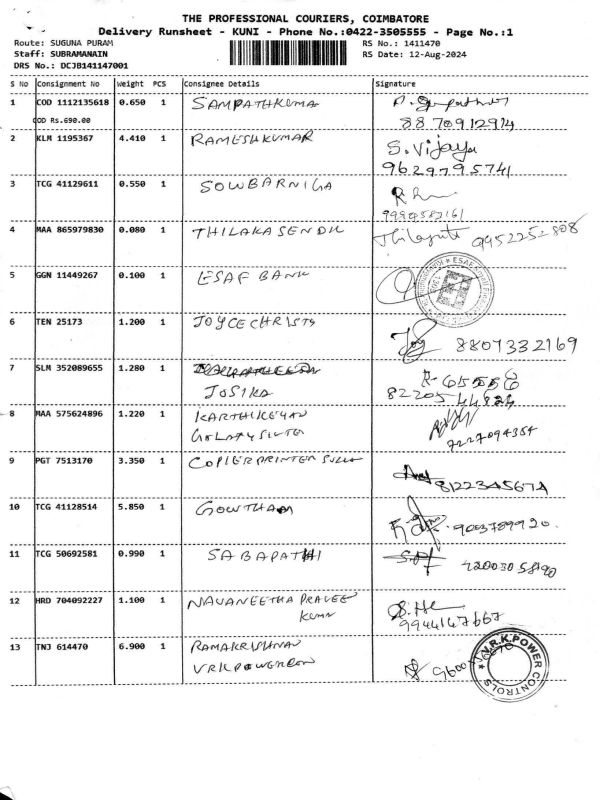 THE PROFESSIONAL COURIERS, COIMBATORE
Delivery Runsheet - KUNI - Phone No.:0422-3505555 - Page No.:1
Route: SUGUNA PURAM RS No.: 1411470
Staff: SUBRAMANAIN RS Date: 12-Aug-2024
DRS No.: DCJB141147001
S No Consignment No Weight PCS Consignee Details Signature
1 COD 1112135618 0.650 1 SAMPATHKUMA
COD Rs.690.00 8870912914
2 KLM 1195367 4.410 1 RAMESHKUMAR S. Vijaya
9629795741
3 TCG 41129611 0.550 1 SOWBARNIGA
4 MAA 865979830 0.080 1 THILAKASENDIL 9952252808
5 GGN 11449267 0.100 1 ESAF BANK
6 TEN 25173 1.200 1 JOYCECHRISTY 8807332169
7 SLM 352089655 1.280 1
JOSIKA
8 MAA 575624896 1.220 1 KARTHIKEYAN
7227094354
9 PGT 7513170 3.350 1 COPIERPRINTER
10 TCG 41128514 5.850 1 GOWTHAM
11 TCG 50692581 0.990 1 SABAPATHI
12 HRD 704092227 1.100 1 NAVANEETHA PRAVEE
KUMR 9944147667
13 TNJ 614470 6.900 1 RAMAKRISHNAN
V.R.K.POWER CONTROLS